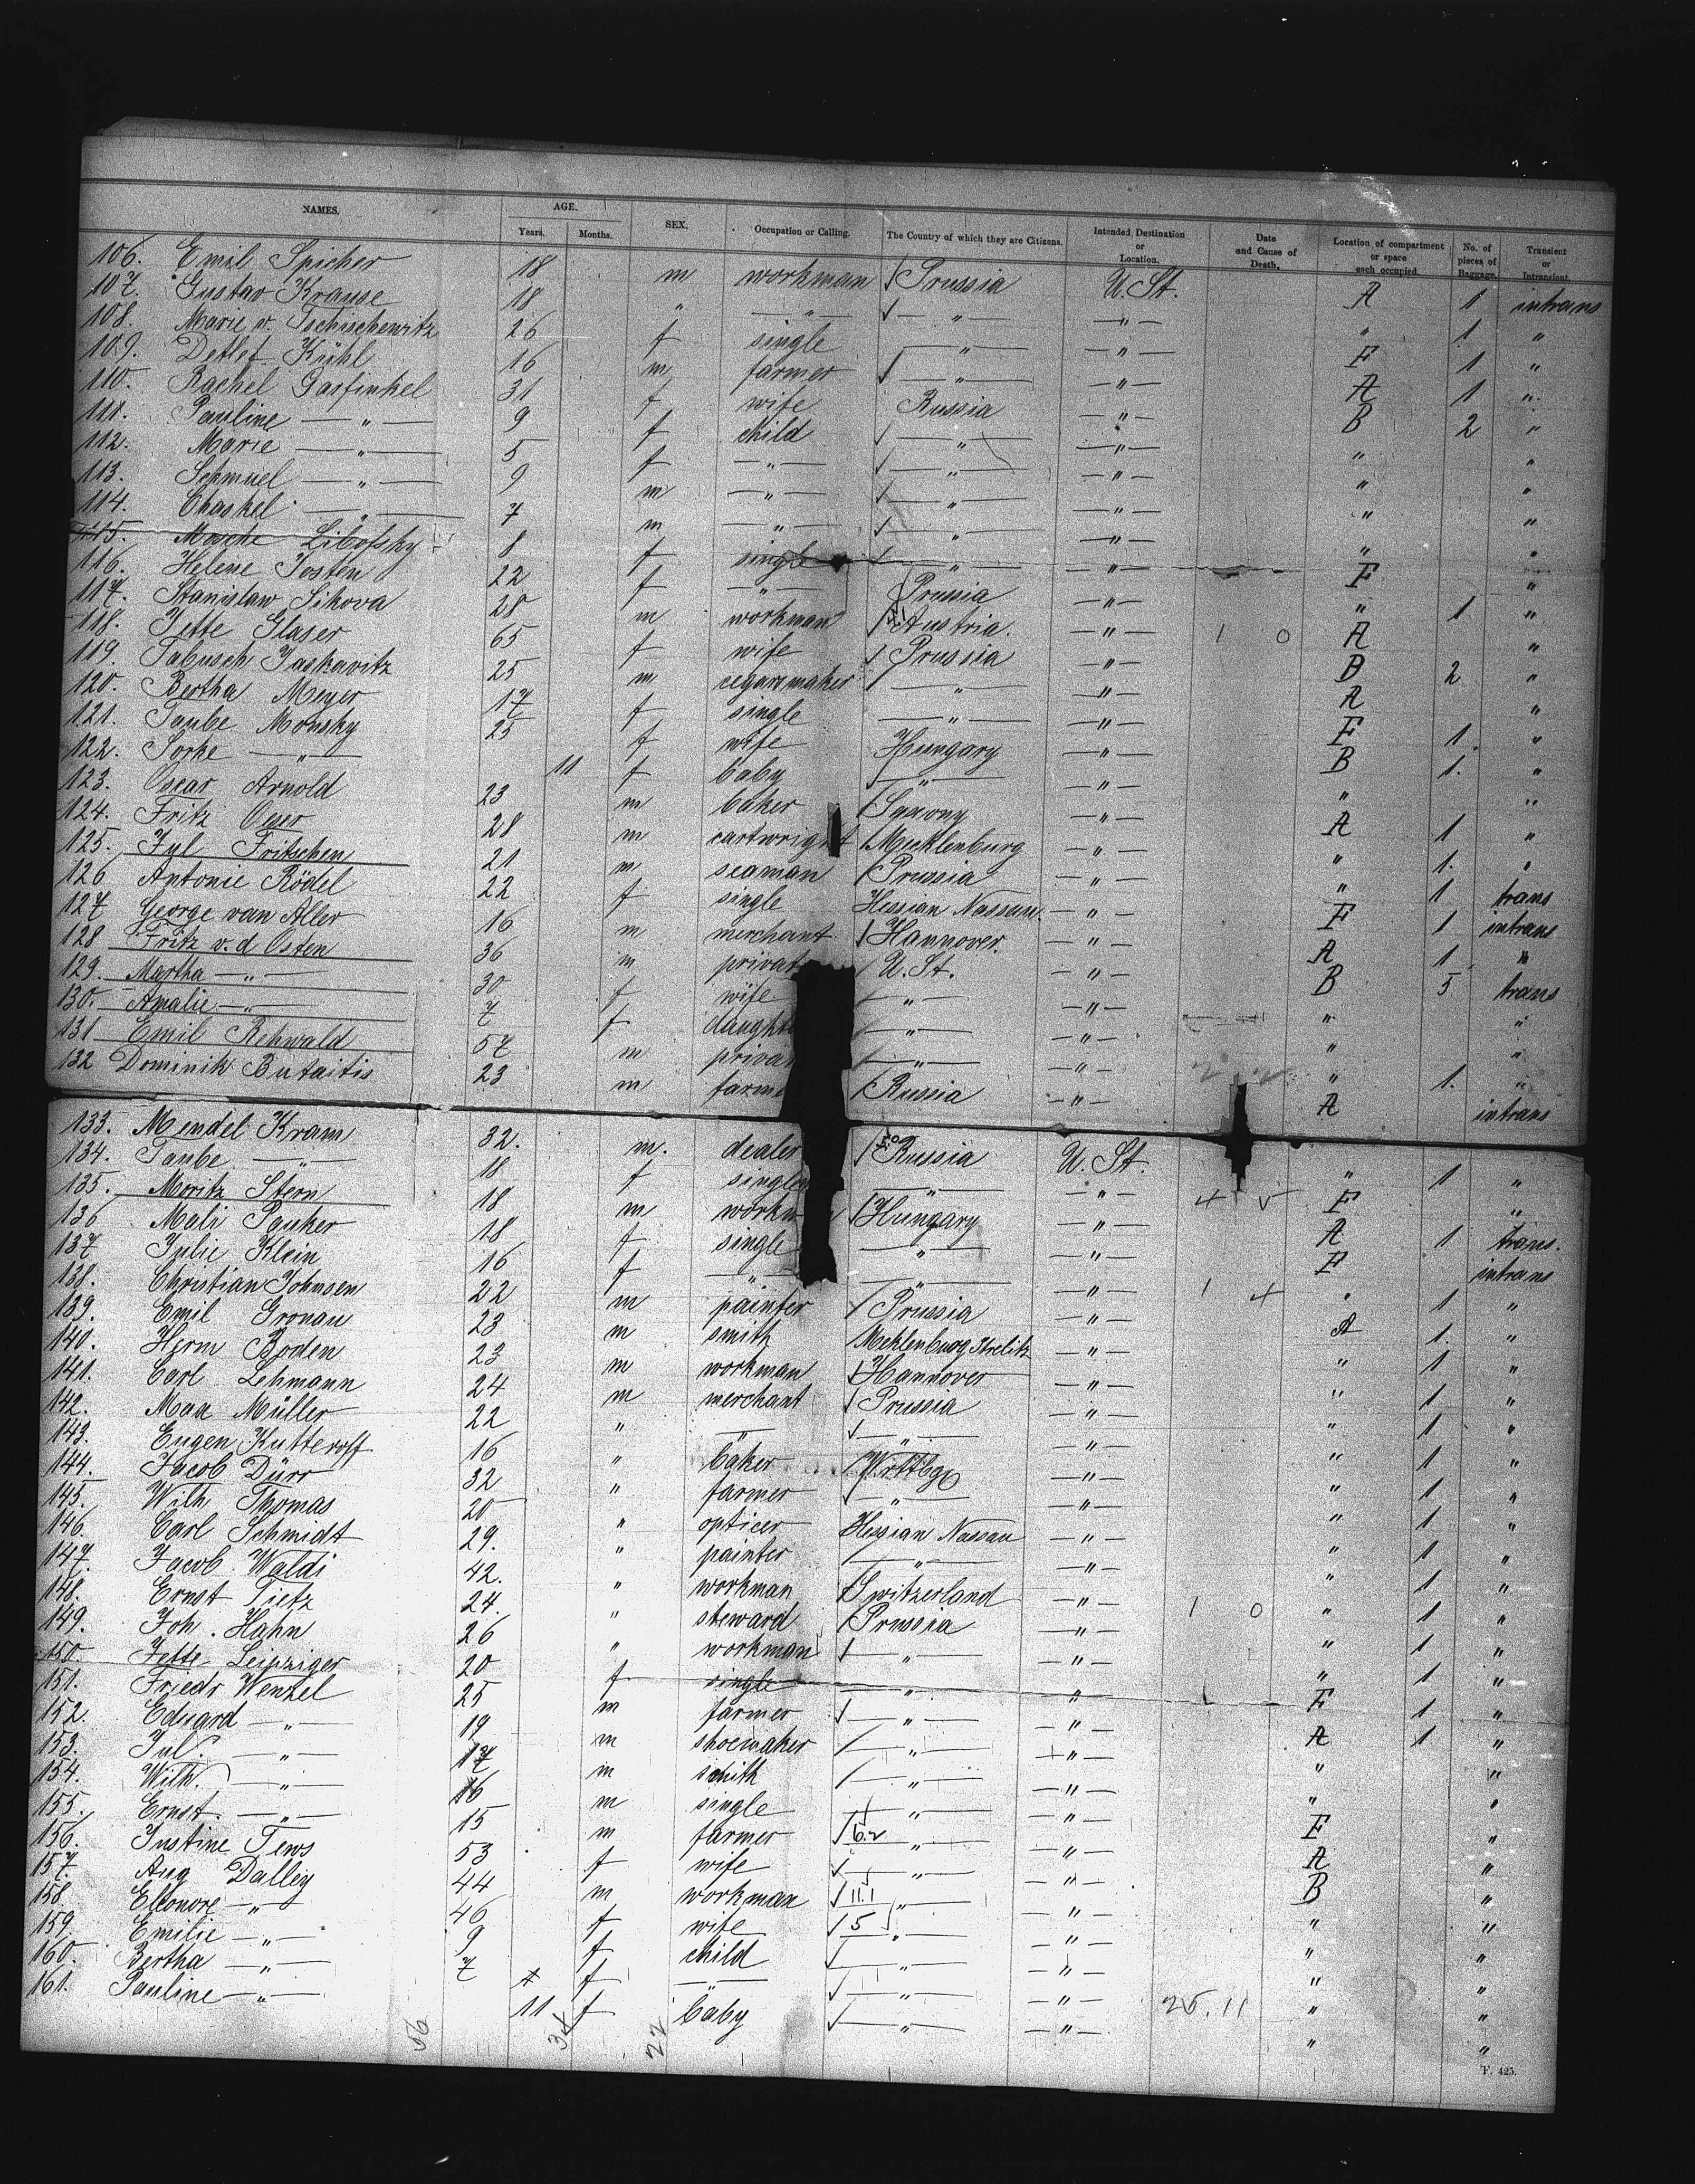 NAMES. AGE. Years. Months. SEX. Occupation or Calling. The Country of which they are Citizens. Intended Destination or Location. Date and Cause of Death. Location of compartment or space each occupied. No. of pieces of Baggage. Transient or Intransient.
106. Emil Spicher 18 m workman Prussia U. St. A 1 intrans
107. Gustav Krause 18 " — " — — " — — " — " 1 "
108. Marie v. Tschischewitz 26 f single — " — — " — F 1 "
109. Detlef Kühl 16 m farmer — " — — " — A 1 "
110. Rachel Garfinkel 31 f wife Russia — " — B 2 "
111. Pauline — " — 9 f child — " — — " — " "
112. Marie — " — 5 f — " — — " — — " — " "
113. Schmuel — " — 9 m — " — — " — — " — " "
114. Chaskel — " — 7 m — " — — " — — " — " "
115. Mosche Libofsky 8 f single — " — — " — F "
116. Helene Josten 22 f — " — Prussia — " — " 1 "
117. Stanislaw Sikova 28 m workman Austria. — " — 1 0 A "
118. Jette Glaser 65 f wife Prussia — " — B 2 "
119. Tabusch Jaskawitz 25 m cegarrmaker — " — — " — A "
120. Bertha Meyer 17 f single — " — — " — F 1 "
121. Taube Monsky 25 f wife Hungary — " — B 1. "
122. Sorke — " — 11 f baby — " — — " — " "
123. Oscar Arnold 23 m baker Saxony — " — A 1 "
124. Fritz Oeser 28 m cartwright Mecklenburg — " — " 1. "
125. Jul Fritschen 21 m seaman Prussia — " — " 1 trans
126 Antonie Rödel 22 f single Hessian Nassau — " — F 1 intrans
127 George van Aller 16 m merchant Hannover. — " — A 1 "
128 Fritz v. d Osten 36 m privat U. St. — " — B 5 trans
129. Martha — " — 30 f wife — " — — " — " "
130. Amalie — " — 7 f daught — " — — " — " "
131 Emil Rehwald 57 m priva — " — — " — " 1. "
132 Dominik Butaitis 23 m farme Russia — " — A intrans
133. Mendel Kram 32. m. dealer Russia U. St. " 1 "
134. Taube — " — 18 f single — " — — " — 4 5 F "
135. Moritz Stern 18 m workm Hungary — " — A 1 trans.
136 Mali Pauker 18 f single — " — — " — F intrans
137 Julie Klein 16 f — " — — " — — " — 1 4 " 1 "
138. Christian Johnsen 22 m painter Prussia — " — A 1. "
139. Emil Gronau 23 m smith Meklenburg Strelitz — " — " 1 "
140. Herm Boden 23 m workman Hannover — " — " 1 "
141. Carl Lehmann 24 m merchant Prussia — " — " 1 "
142. Max Müller 22 " — " — — " — — " — " 1 "
143. Eugen Kutteroff 16 " baker Wrttbg — " — " 1 "
144. Jacob Dürr 32 " farmer — " — — " — " 1 "
145. Wilh Thomas 20 " opticer Hessian Nassau — " — " 1 "
146. Carl Schmidt 29. " painter — " — — " — " 1 "
147. Jacob Waldi 42. " workman Switzerland — " — 1 0 " 1 "
148. Ernst Tietz 24. " steward Prussia — " — " 1 "
149. Joh. Hahn 26 " workman — " — — " — " 1 "
150. Jette Leipziger 20 f single — " — — " — F 1 "
151. Friedr Wenzel 25 m farmer — " — — " — A 1 "
152. Eduard — " — 19 m shoemaker — " — — " — " "
153. Jul. — " — 17 m smith — " — — " — " "
154. Wilh. — " — 16 m single — " — — " — F "
155. Ernst. — " — 15 m farmer — " — — " — A "
156. Justine Tews 53 f wife — " — — " — B "
157. Aug Dalley 44 m workman — " — — " — " "
158 Eleonore — " — 46 f wife — " — — " — " "
159. Emilie — " — 9 f child — " — — " — " "
160. Bertha — " — 7 f — " — — " — — " — " "
161. Pauline — " — 11 f baby — " — — " — 25.11 " "
56 34 22
F. 425.